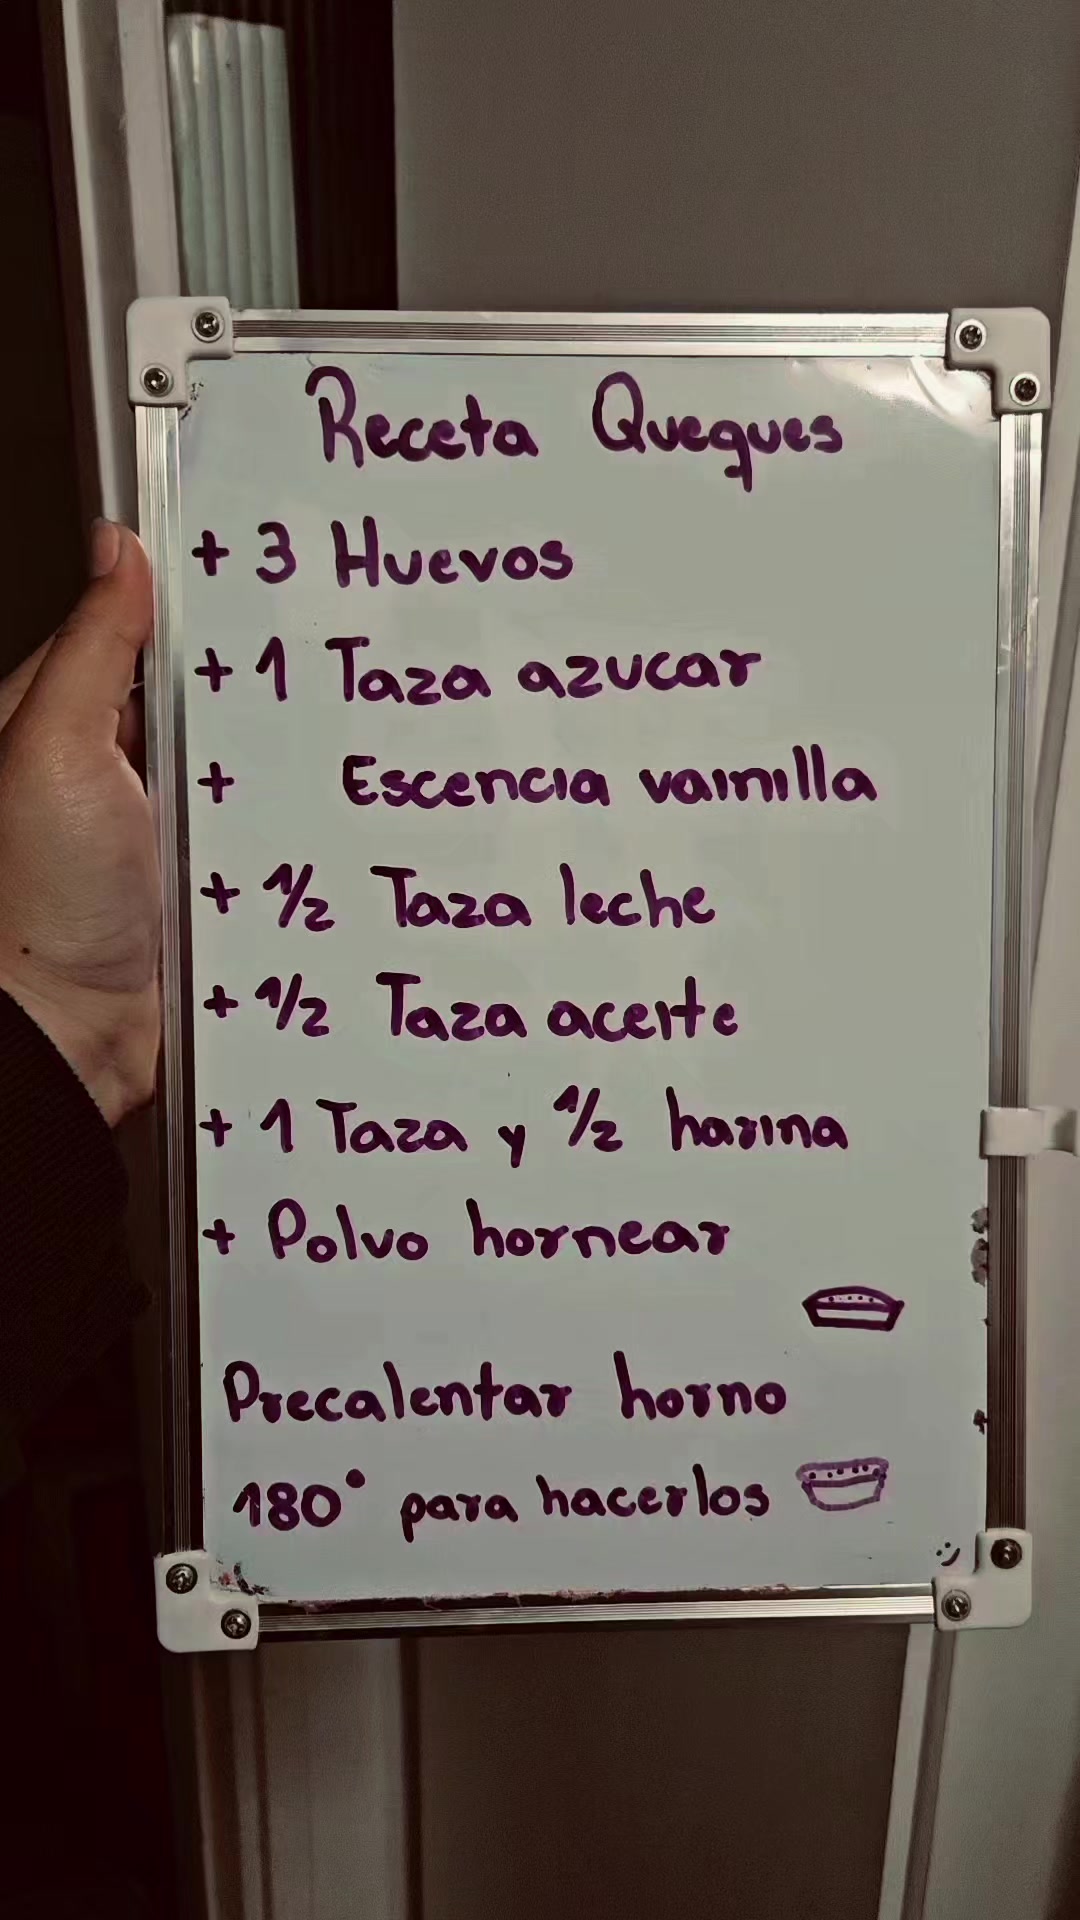 Receta Queques
+ 3 Huevos
+ 1 Taza azucar
+ Escencia vainilla
+ 1/2 Taza leche
+ 1/2 Taza aceite
+ 1 Taza y 1/2 harina
+ Polvo hornear
Precalentar horno
180° para hacerlos